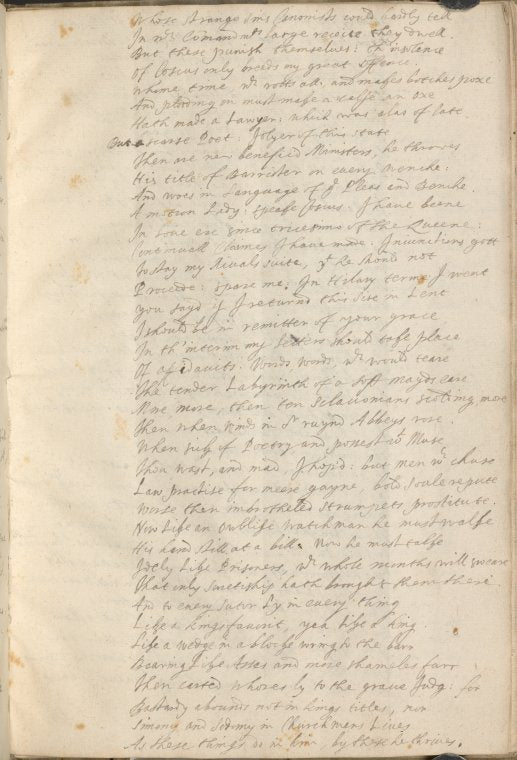 Whose strange sins Canonists could hardly tell
In wch Comandmts large receite they dwell.
But these punish themselves: Th' insolence
Of Coscus only breeds my great offence.
whome time, wch rotts all, and makes botches poxe
And plodding on must make a calfe an oxe
Hath made a Lawyer: which was alas of late
But a scarse Poet: Jolyer of this state
Then are new beneficed Ministers, he throwes
His title of Barrister on every wenche:
And woes in Language of ye Pleas and Benche.
A motion Lady: speake Coscus. I have beene
In Love ere since tricesimo of the Queene:
Continuall Claimes I have made: Iniunctions gott
To stay my Rivals suite, yt he should not
Proceede: spare me: In Hilary terme I went
you sayd if I returnd this Sise in Lent
I should be in remitter of your grace
In th' interim my Letters should take place
Of afidavits: Words, words, wch would teare
The tender Labyrinth of a soft mayds eare
More, more, then ten Sclavonians scolding more
Then when winds in or ruynd Abbeys rore.
When sick of Poetry and possest wth Muse
Thou wast, and mad, I hop'd: but men wch chuse
Law practise for meere gayne, bold soule repute
Worse than imbrotheled strumpets prostitute.
Now like an owllike watchman he must walke
His hand still at a bill, Now he must talke
Idely like Prisoners, wch whole months will sweare
That only suretiship hath brought them there
And to every sutor Ly in every thing
Like a kings favourit, yea like a king
Like a wedge in a blocke wring to the barr
Bearing like Asses and more shameles farr
Then carted whores ly to the grave Judg: for
Bastardy abounds not in kings titles, nor
Simony and Sodomy in Churchmens Lives
As these things do in him, by these he thrives.